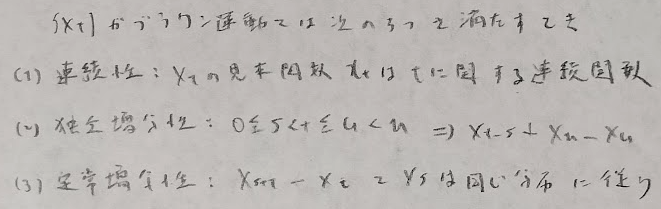 {Xt} がブラウン運動とは次の3つを満たすとき
(1) 連続性: Xtの見本関数 xtはtに関する連続関数
(2) 独立増分性: 0≦s<t≦u<n ⇒ Xt-s ⊥ Xn-Xu
(3) 定常増分性: Xs+t-Xt と Xsは同じ分布に従う